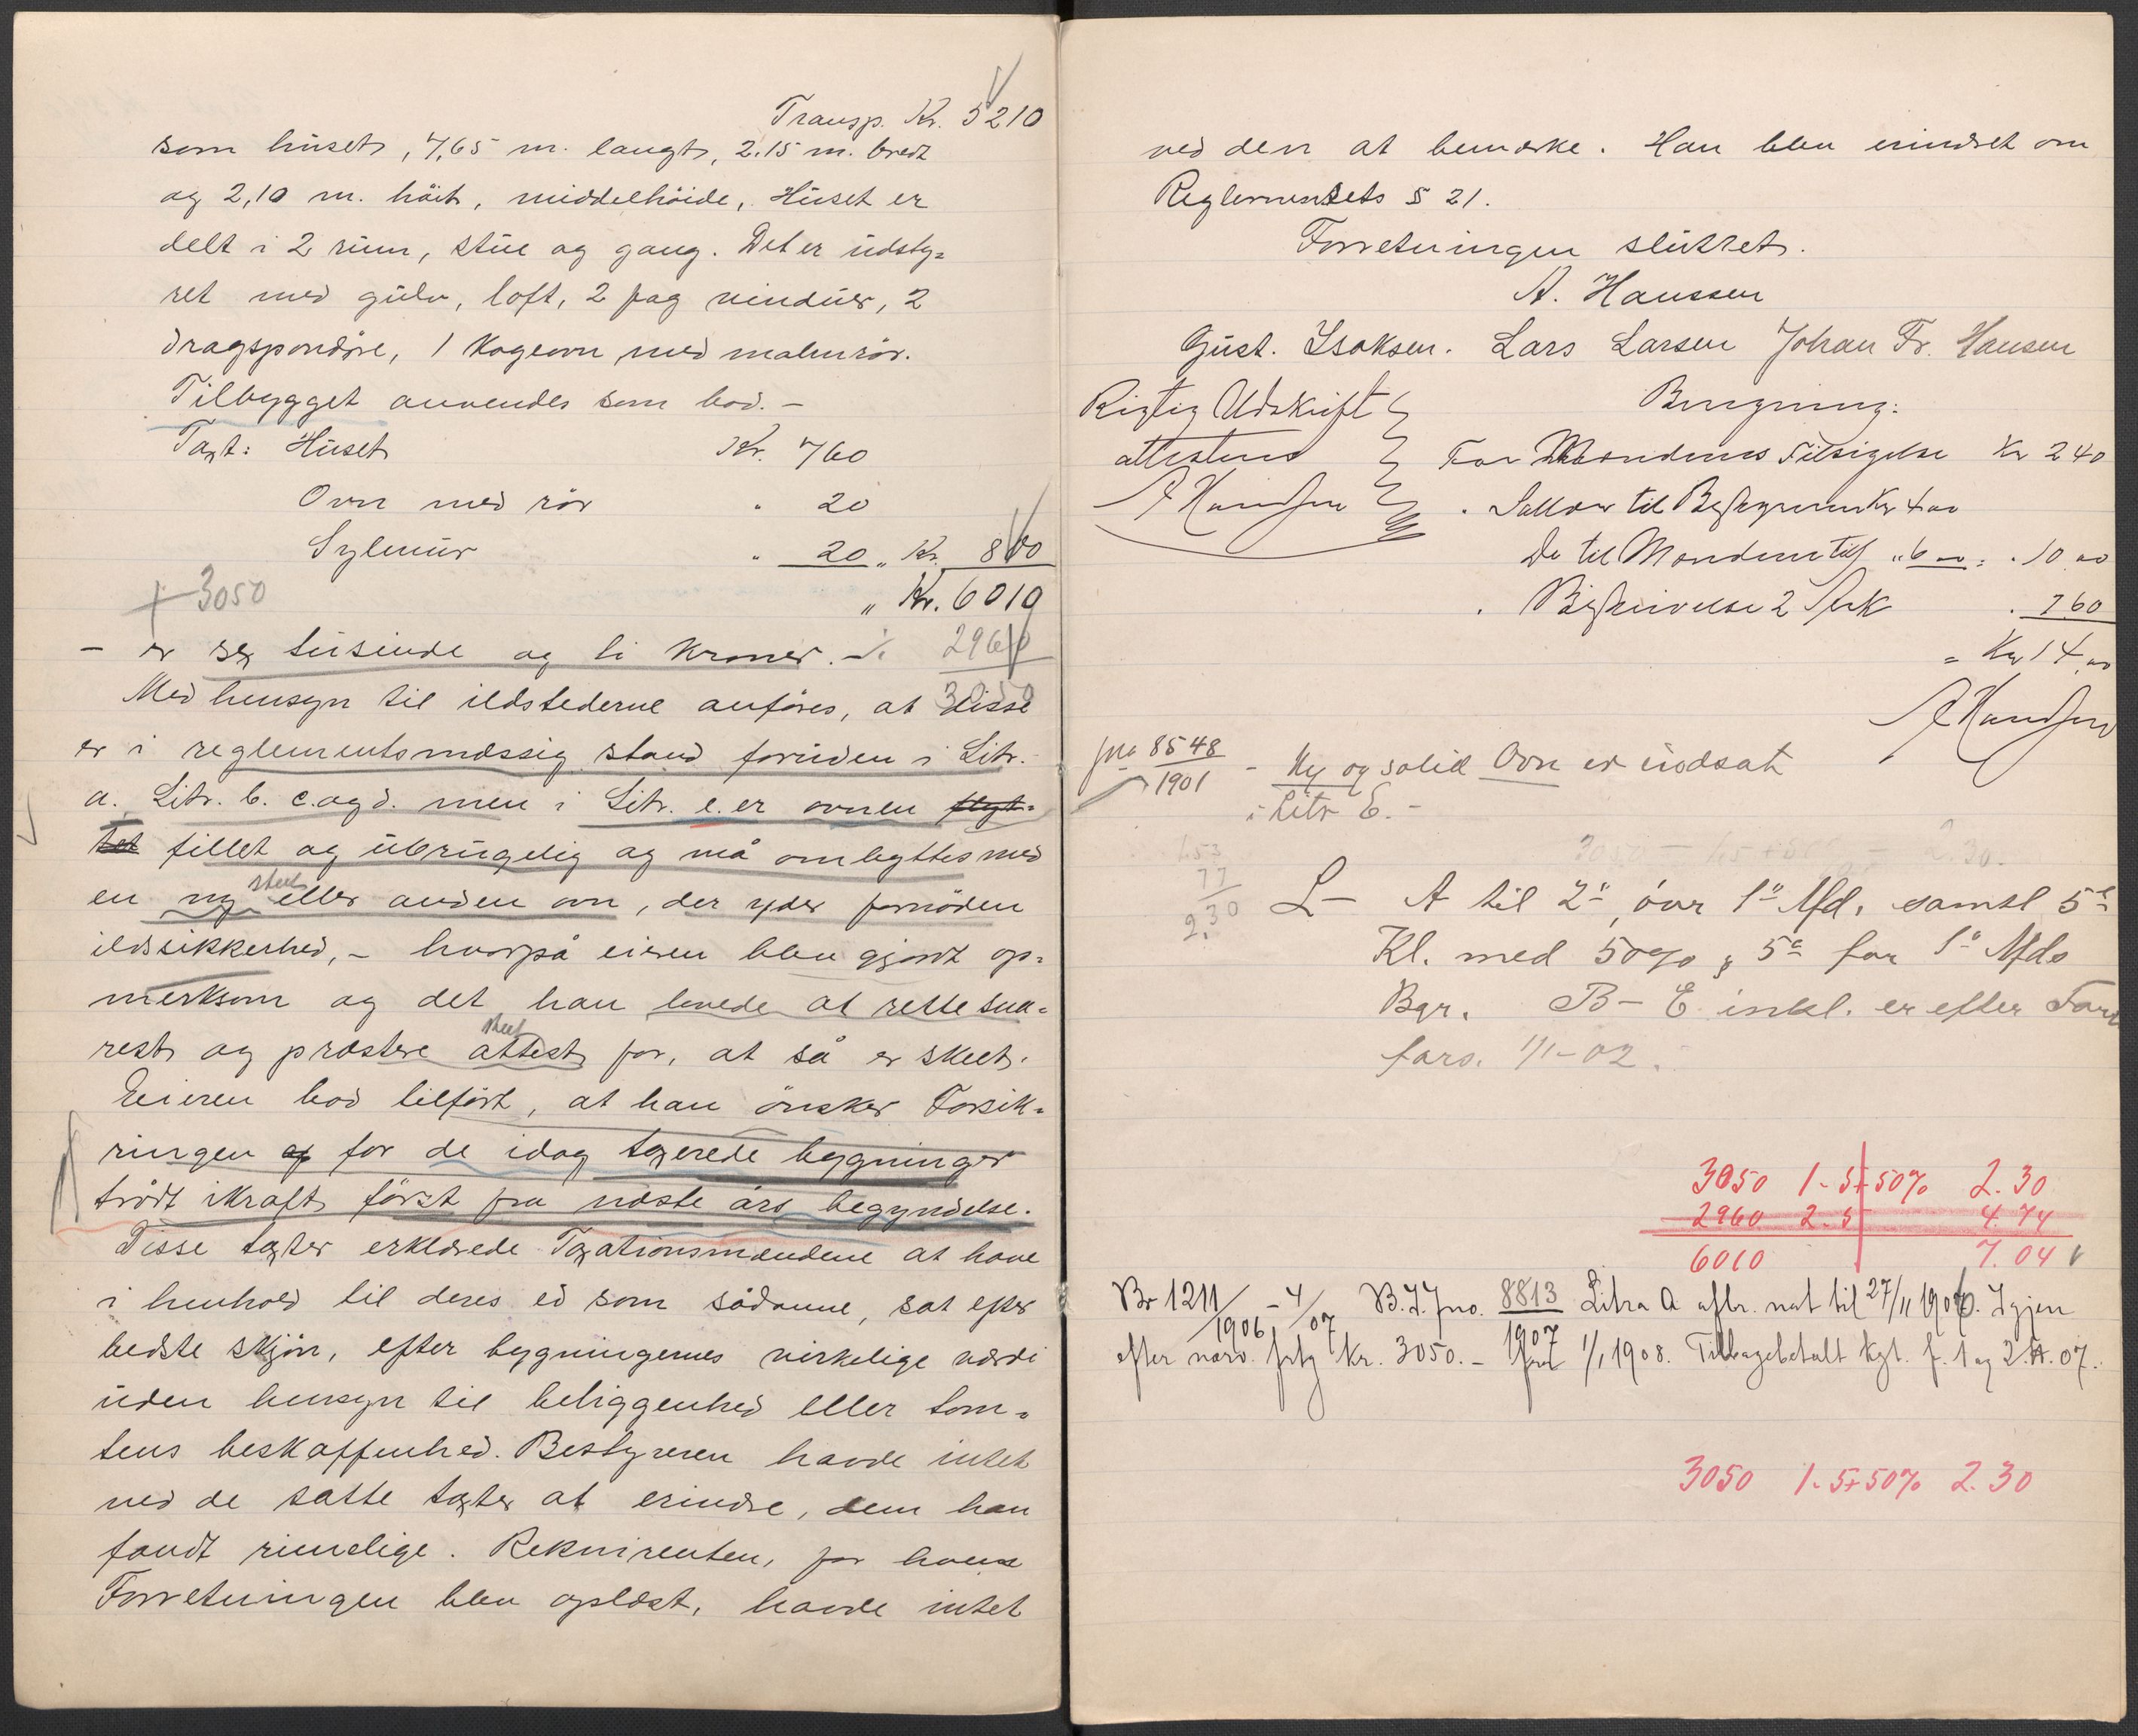 Transp. Kr. 5210
som huset, 7,65 m. langt, 2.15 m. bredt
og 2,10 m. höit, middelhöide, Huset er
delt i 2 rum, stue og gang. Det er udsty=
ret med gulv, loft, 2 fag vinduer, 2
dragspondöre, 1 Kogeovn med malmrör.
Tilbygget anvendes som bod. -
Taxt: Huset Kr. 760
Ovn med rör " 20
Sylmur " 20 " Kr. 800
+ 3050 " Kr. 6010
- er sex tusinde og ti Kroner. - ÷ 2960
3050
Med hensyn til ildstederne anföres, at disse
er i reglementsmæssig stand foruden i Litr.
a. Litr. b. c. og d. men i Litr. e. er ovnen flyt=
tet fillet og ubrugelig og må ombyttes med
en ny eller anden ovn, der yder fornöden
ildsikkerhed, - hvorpå eieren blev gjort op=
merksom og det han lovede at rette sna=
rest og præstere attest for, at så er skeet.
Eieren bad tilfört, at han önsker Forsik=
ringen af for de idag taxerede bygninger
trådt ikraft först fra næste års begyndelse.
Disse taxter erklærede Taxationsmændene at have
i henhold til deres ed som sådanne, sat efter
bedste skjön, efter bygningernes virkelige værdi
uden hensyn til beliggenhed eller tom=
tens beskaffenhed. Bestyreren havde intet
ved de satte taxter at erindre, dem han
fandt rimelige. Rekvirenten, for hvem
Forretningen blev oplæst, havde intet
ved den at bemærke. Han blev erindret om
Reglementets § 21.
Forretningen sluttet.
A. Hanssen
Gust. Isaksen. Lars Larsen Johan Fr. Hansen
Rigtig Udskrift Beregning:
attesteres For Mændenes Tilsigelse Kr 2 40
A Hanssen
til Bestyreren Kr 4 00
Do til Mændene " 6 00 = " 10 00
" Beskrivelse 2 Ark " 1 60
= Kr 14 00
A Hanssen
jno 8548/1901 - Ny og solid Ovn er indsat
i Litr E. -
3050 - 1.5 + 50% - 2.30.
1.53
77
2.30
L - A til 2", övr 1" Afd. samtl 5te
Kl. med 50%, 5" for 1" Afds
Bgr. B - E inkl. er efter
fars. 1/1-02.
3050 1 - 5 + 50% 2.30
2960 2 - 5 4.74
6010 7.04
Br 1211/1906 - 4/07 B.I. Jno. 8813/1907 Litra A afbr. nat til 27/11 1906. Igjen
efter nærv. frtg Kr. 3050. - 1/1 1908. Tilbagebetalt Kgt. f. 1 og 2. . 07.
3050 1 - 5 + 50% 2.30